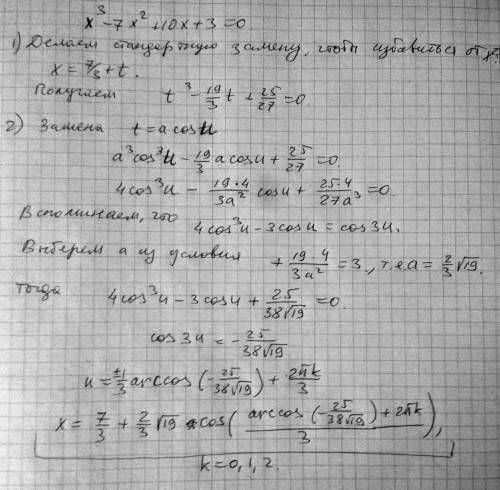 x³-7x²+10x+3=0
1) Делаем стандартную замену, чтобы избавиться от x².
x = 7/3 + t.
Получаем t³ - 19/3 t + 25/27 = 0.
2) Замена t = a cos u
a³cos³u - 19/3 a cos u + 25/27 = 0
4cos³u - 19·4/3a² cos u + 25·4/27a³ = 0.
Вспоминаем, что 4cos³u - 3cos u = cos 3u.
Выберем a из условия + 19·4/3a² = 3, т.е. a = 2/3 √19.
тогда 4cos³u - 3cos u + 25/38√19 = 0.
cos 3u = - 25/38√19
u = ±1/3 arccos(-25/38√19) + 2πk/3
x = 7/3 + 2/3 √19 cos( (arccos(-25/38√19) + 2πk)/3 ),
k = 0, 1, 2.